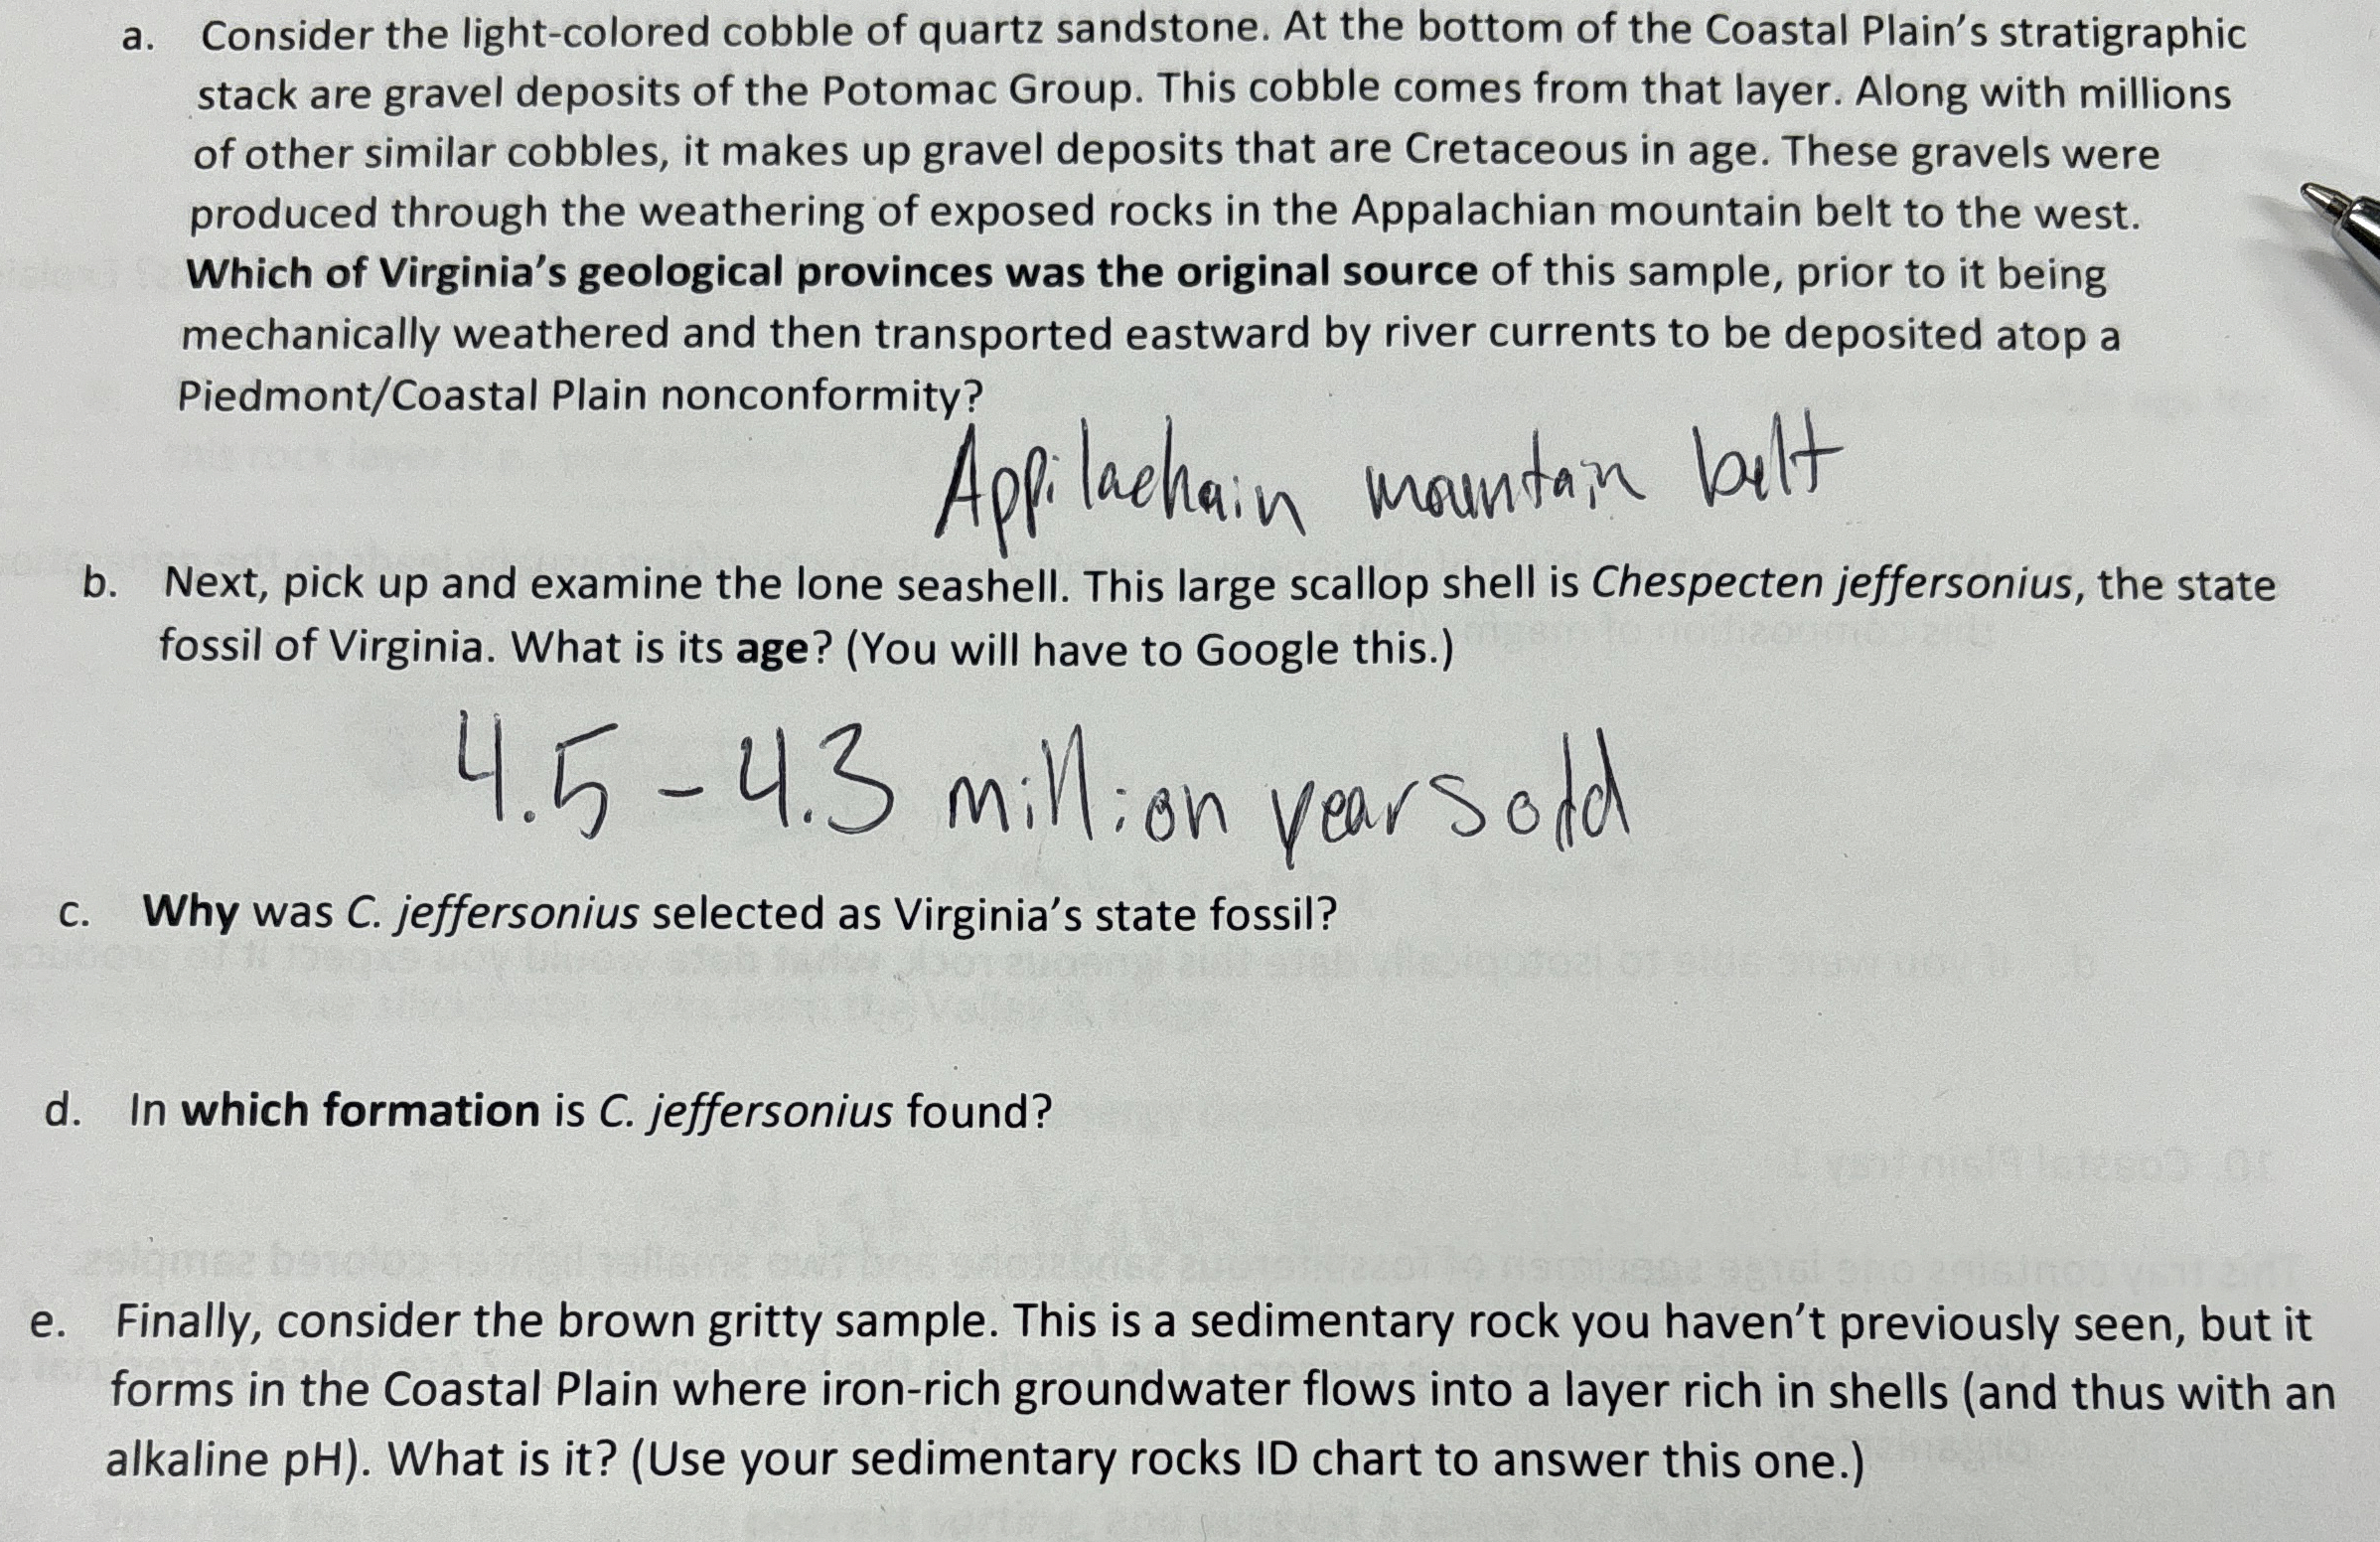 a. Consider the light-colored cobble of quartz sandstone. At the bottom of the Coastal Plain's stratigraphic
stack are gravel deposits of the Potomac Group. This cobble comes from that layer. Along with millions
of other similar cobbles, it makes up gravel deposits that are Cretaceous in age. These gravels were
produced through the weathering of exposed rocks in the Appalachian mountain belt to the west.
Which of Virginia's geological provinces was the original source of this sample, prior to it being
mechanically weathered and then transported eastward by river currents to be deposited atop a
Piedmont/Coastal Plain nonconformity?
Appilachain mountain belt
b. Next, pick up and examine the lone seashell. This large scallop shell is Chespecten jeffersonius, the state
fossil of Virginia. What is its age? (You will have to Google this.)
4.5 - 4.3 million years old
c. Why was C. jeffersonius selected as Virginia's state fossil?
d. In which formation is C. jeffersonius found?
e. Finally, consider the brown gritty sample. This is a sedimentary rock you haven't previously seen, but it
forms in the Coastal Plain where iron-rich groundwater flows into a layer rich in shells (and thus with an
alkaline pH). What is it? (Use your sedimentary rocks ID chart to answer this one.)